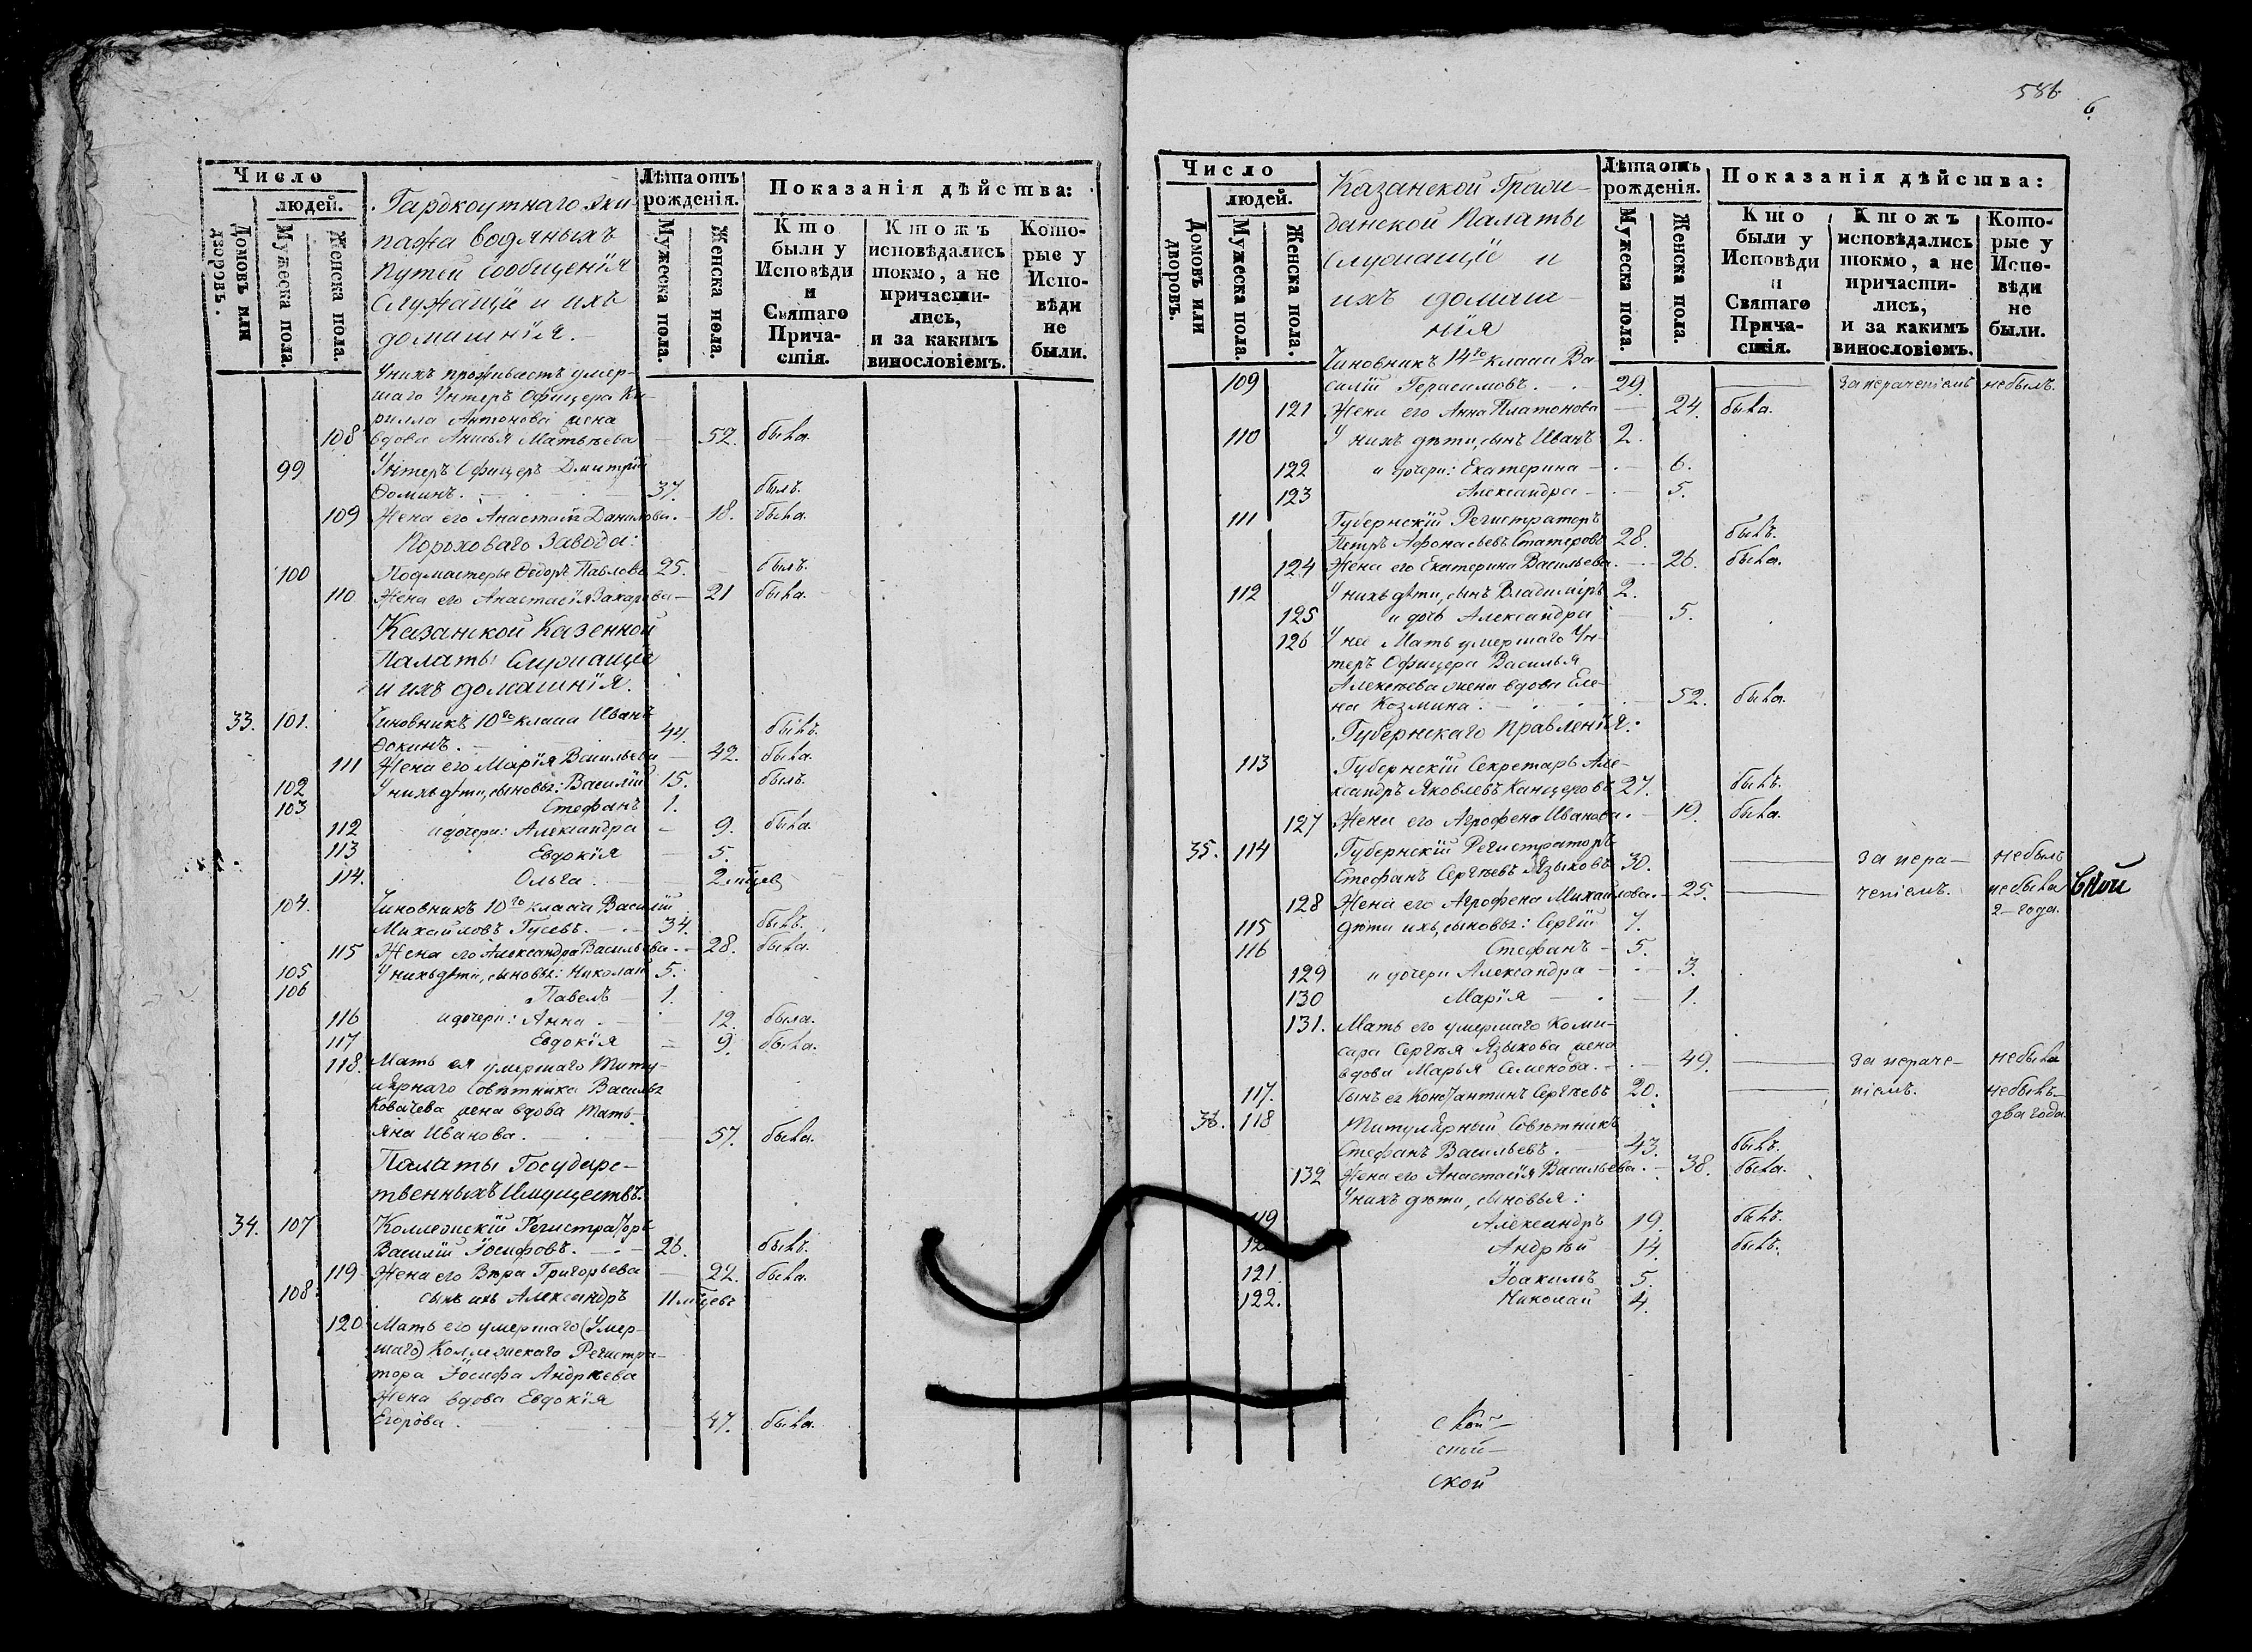 Число
людей.
Домовъ или дворовъ.
Мужеска пола.
Женска пола.
Гардкоутнаго Эки-
пажа водяныхъ
путей сообщенія
Служащіи и ихъ
домашнія.
Лѣта отъ рожденія.
Мужеска пола.
Женска пола.
Показанія дѣйства:
Кто были у Исповѣди и Святаго Прича-стія.
Ктожъ исповѣдались токмо, а не причасти-лись, и за какимъ винословіемъ.
Кото-рые у Испо-вѣди не были.
У нихъ проживаетъ умер-
шаго Унтеръ Офицера Ки-
рилла Антонова жена
108 вдова Анисья Матвѣева — 52. была.
99 Унтеръ Офицеръ Дмитрій
Ѳоминъ. 37. былъ.
109 Жена его Анастасія Данилова. — 18. была.
Пороховаго Завода:
100 Подмастерье Ѳедоръ Павловъ 25. былъ.
110 Жена его Анастасія Захарова — 21 была.
Казанской Казенной
Палаты Служащіе
и ихъ домашнія.
33. 101. Чиновникъ 10го класа Иванъ
Ѳокинъ. 44. былъ.
111 Жена его Марія Васильева — 42. была.
102 У нихъ дѣти, сыновья: Василій 15. былъ.
103 Стефанъ 1.
112 и дочери: Александра — 9. была.
113 Евдокія — 5.
114. Ольга. 2 мѣсяц
104. Чиновникъ 10го класа Василій
Михайловъ Гусевъ. — 34. былъ.
115 Жена его Александра Васильева. — 28. была.
105 У нихъ дѣти, сыновья: Николай 5.
106 Павелъ — 1.
116 и дочери: Анна. 12. была.
117 Евдокія — 9. была.
118. Мать ея умершаго Титу-
лярнаго Совѣтника Василья
Ковачева жена вдова Тать-
яна Иванова. 57. была.
Палаты Государс-
твенныхъ Имуществъ.
34. 107 Коллежскій Регистраторъ
Василій Іосифовъ. — 26. былъ.
119 Жена его Вѣра Григорьева — 22. была.
108. сынъ ихъ Александръ 11 мѣсяцъ
120 Мать его умершаго (Умер-
шаго) Коллежскаго Регистра-
тора Іосифа Андреева
Жена вдова Евдокія
Егорова. 47. была.
586
6
Число
людей.
Домовъ или дворовъ.
Мужеска пола.
Женска пола.
Казанской Граж-
данской Палаты
Служащіе и
ихъ домаш-
нія
Лѣта отъ рожденія.
Мужеска пола.
Женска пола.
Показанія дѣйства:
Кто были у Исповѣди и Святаго Прича-стія.
Ктожъ исповѣдались токмо, а не причасти-лись, и за какимъ винословіемъ.
Кото-рые у Испо-вѣди не были.
Чиновникъ 14го класа Ва-
109 силій Герасимовъ. — 29. — за нераченіемъ небылъ.
121 Жена его Анна Платонова — 24. была.
110 У нихъ дѣти, сынъ Иванъ 2.
122 и дочери: Екатерина — 6.
123 Александра — 5.
111 Губернскій Регистраторъ
Петръ Афонасьевъ Статеровъ 28. былъ.
124 Жена его Екатерина Васильева. — 26. была.
112 У нихъ дѣти, сынъ Владиміръ 2.
125 и дочь Александра — 5.
126 У нее Мать умершаго Ун-
теръ Офицера Василья
Алексѣева жена вдова Еле-
на Козмина. 52. была.
Губернскаго Правленія:
113 Губернскій Секретарь Але-
ксандръ Яковлевъ Канцеровъ 27. былъ.
127 Жена его Агрофена Иванова. — 19. была.
35. 114 Губернскій Регистраторъ
Стефанъ Сергѣевъ Языковъ 30. — за нера- небылъ
128 Жена его Агрофена Михайлова. — 25. — ченіемъ. небыла
2 года.
115 дѣти ихъ, сыновья: Сергій 7.
116 Стефанъ — 5.
129 и дочери Александра — 3.
130 Марія — 1.
131. Мать его умершаго Коми-
сара Сергѣя Языкова жена
вдова Марья Семенова. — 49. — за нераче- небыла
117. Сынъ ея Константинъ Сергѣевъ 20. — ніемъ. небылъ
два года.
36. 118 Титулярный Совѣтникъ
Стефанъ Васильевъ. 43. былъ.
132 Жена его Анастасія Васильева. — 38. была.
У нихъ дѣти, сыновья:
119 Александръ 19. былъ.
120 Андрей 14. былъ.
121. Іоакимъ 5.
122. Николай 4.
ской
ской